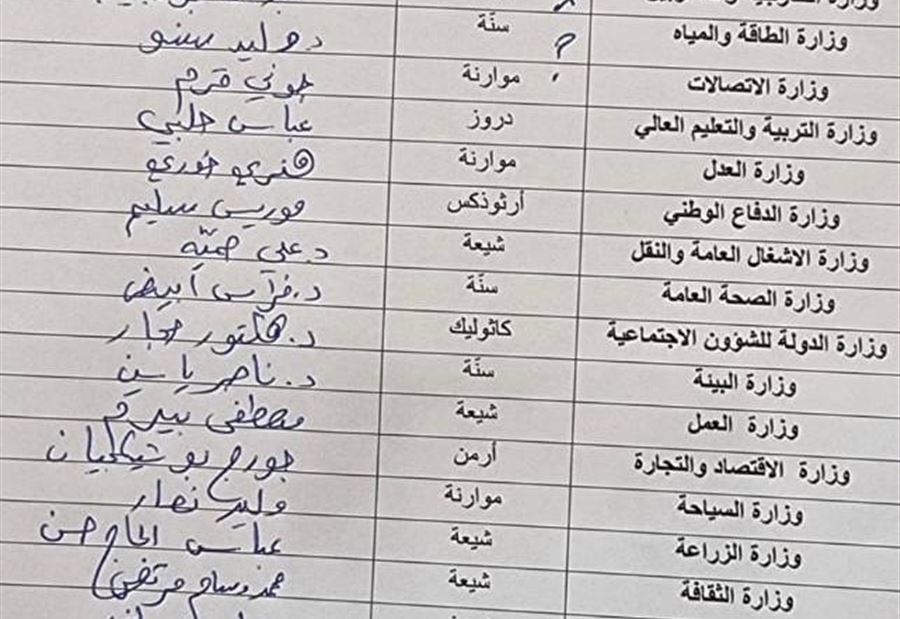 وزارة الطاقة والمياه سنّة ? د. وليد سنو
وزارة الاتصالات موارنة جوني قرم
وزارة التربية والتعليم العالي دروز عباس حلبي
وزارة العدل موارنة هنري خوري
وزارة الدفاع الوطني أرثوذكس موريس سليم
وزارة الاشغال العامة والنقل شيعة د. علي حميّه
وزارة الصحة العامة سنّة د. فراس أبيض
وزارة الدولة للشؤون الاجتماعية كاثوليك د. هكتور حجار
وزارة البيئة سنّة د. ناصر ياسين
وزارة العمل شيعة مصطفى بيرم
وزارة الاقتصاد والتجارة أرمن جورج بوشيكجيان
وزارة السياحة موارنة وليد نصار
وزارة الزراعة شيعة عباس الحاج حسن
وزارة الثقافة شيعة محمد وسام مرتضى